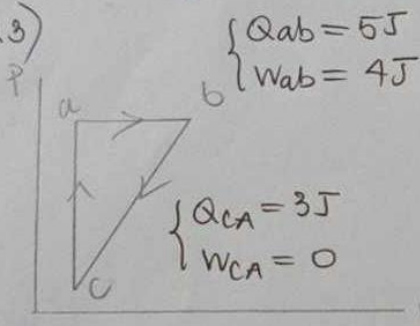 .3)
Qab = 5J
Wab = 4J
P
a
b
QCA = 3J
WCA = 0
C